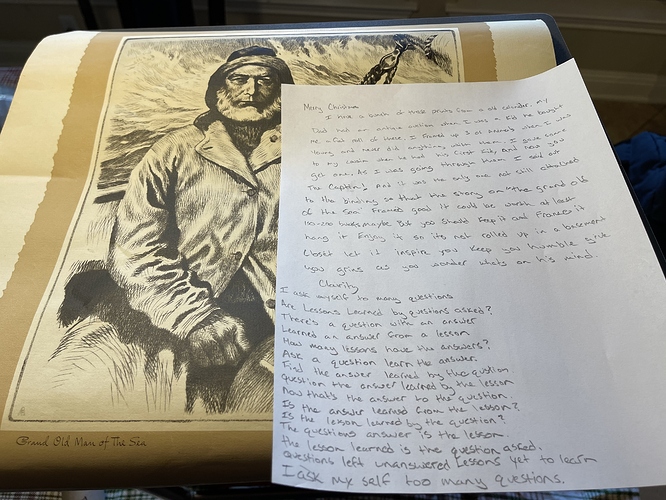 Merry Christmas
I have a bunch of these prints from a old calendar. My
Dad had an antique auction when I was a kid he bought
me a fat roll of these. I Framed up 3 at
young and never did anything with them. I gave some
to my cousin when he had his first baby and now you
get one. As I was going through them I said out
The Captain! And it was the only one not still attached
to the binding so that the story on the grand old
of the sea! Framed good it could be worth at least
100-200 bucks maybe. But you should keep it and Frames it
hang it Enjoy it so its not rolled up in a basement
Closet let it inspire you keep you humble give
you grins as you wonder whats on his mind.
Clarity
I ask myself to many questions
Are Lessons Learned by questions asked?
There's a question with an answer
Learned an answer from a lesson
How many lessons have the answers?
Ask a question learn the answer.
Find the answer learned by the qustion
question the answer learned by the lesson
Now that's the answer to the question.
Is the answer learned from the lesson?
Is the lesson learned by the question?
The questions answer is the lesson.
the lesson learned is the question asked.
questions left unanswered Lessons yet to learn
I ask my self too many questions.
Grand Old Man of The Sea